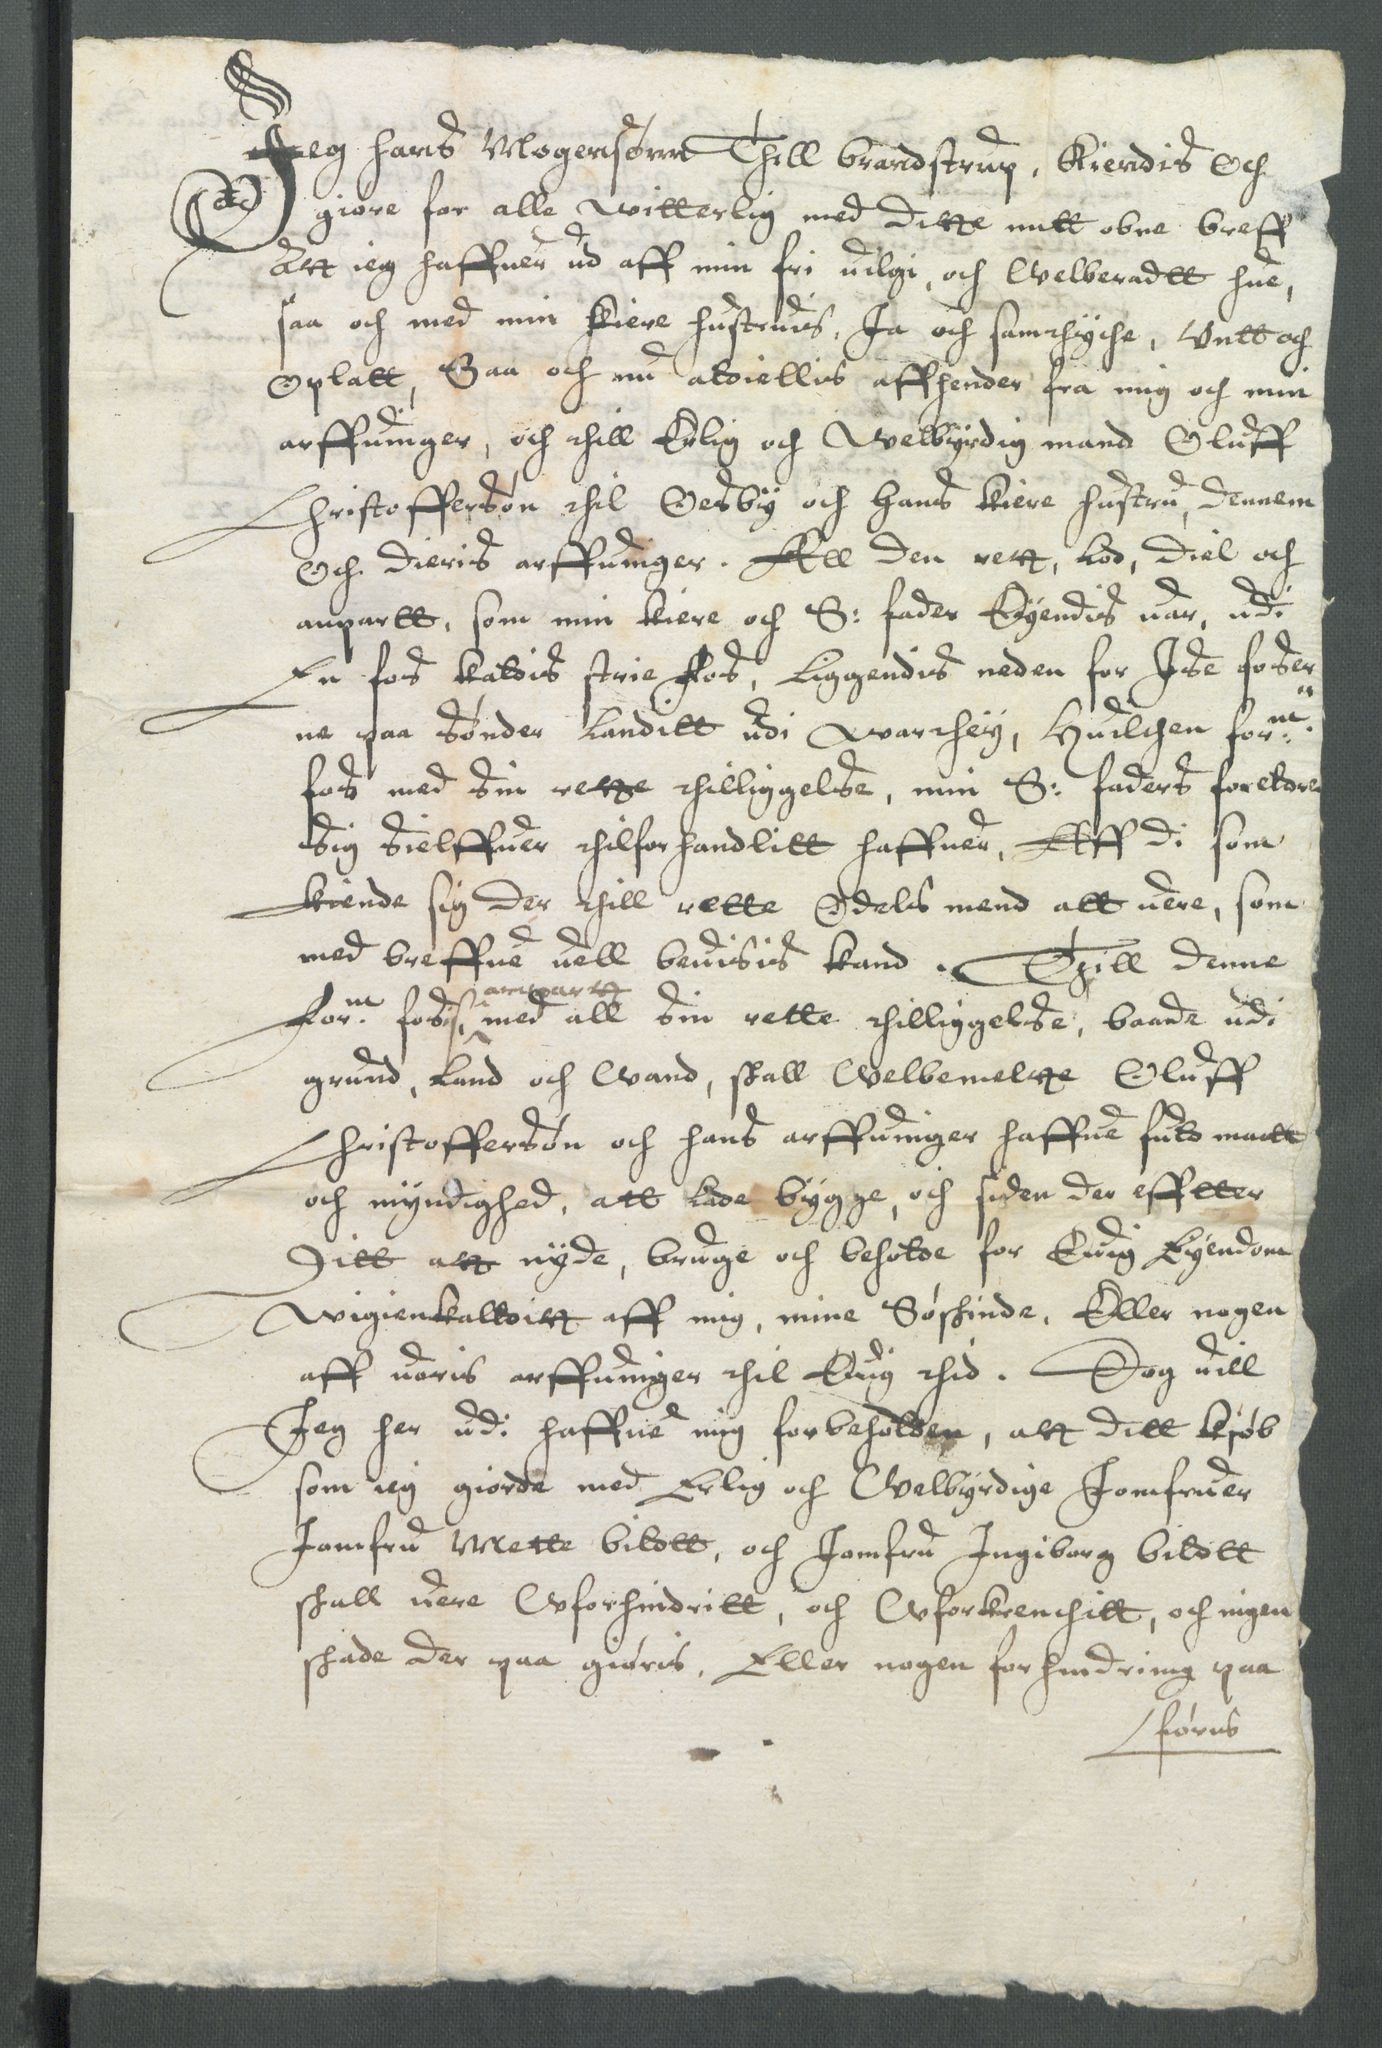 Jeg Hans Mogensønn Thill brandstrup, Kiendis Och
giøre for alle witterlig med dette mitt obne breff
Att ieg haffuer ud aff min fri uilgi, och Welberadtt hue,
saa och med min kiere hustruis, Ja och samthyche, Untt och
Oplatt, Saa och nu aldiellis affhender fra mig och min
arffuinger, och thill Erlig och Welbyrdig mand Oluff
Christoffersøn thil Oesby och Hans kiere hustru, dennem
Och dieris arffuinger. All den rett, lod, diel och
anpartt, som min kiere och S: fader Eyendis uar, udi
En fos kaldis strie fos, Liggendis neden for Ise foser
ne paa Sønder Landitt udi warthey, Huilchen forne:
fos med sin rette thilliggelse, min S: faders foreldre
sig sielffuer thilforhandlitt haffuer, Aff di som
kiende sig der thill rette Odels mend att uere, som
med breffue uell beuisis kand. Thill denne
Forne fosis anpartt, med all sin rette thilliggelse, baade udi
grund, Land och Wand, skall Welbemelte Oluff
Christoffersøn och hans arffuinger haffue fuld mactt
och myndighed, att lade bygge, och siden der effter
Ditt att nyde, bruge och beholde for Euig Eyendom
wigienkalditt aff mig, mine Søskinde, Eller nogen
aff uoris arffuinger thil Euig thid. Dog uill
Jeg her udi haffue mig forbeholden, att ditt kiøb
som ieg giorde med Erlig och Welbyrdige Jomfruer
Jomfru Mette bildtt, och Jomfru Ingiborg bildtt
skall uere Uforhindritt, och Uforkrenchitt, och ingen
skade der paa giøris, Eller nogen forhindring paa
føris